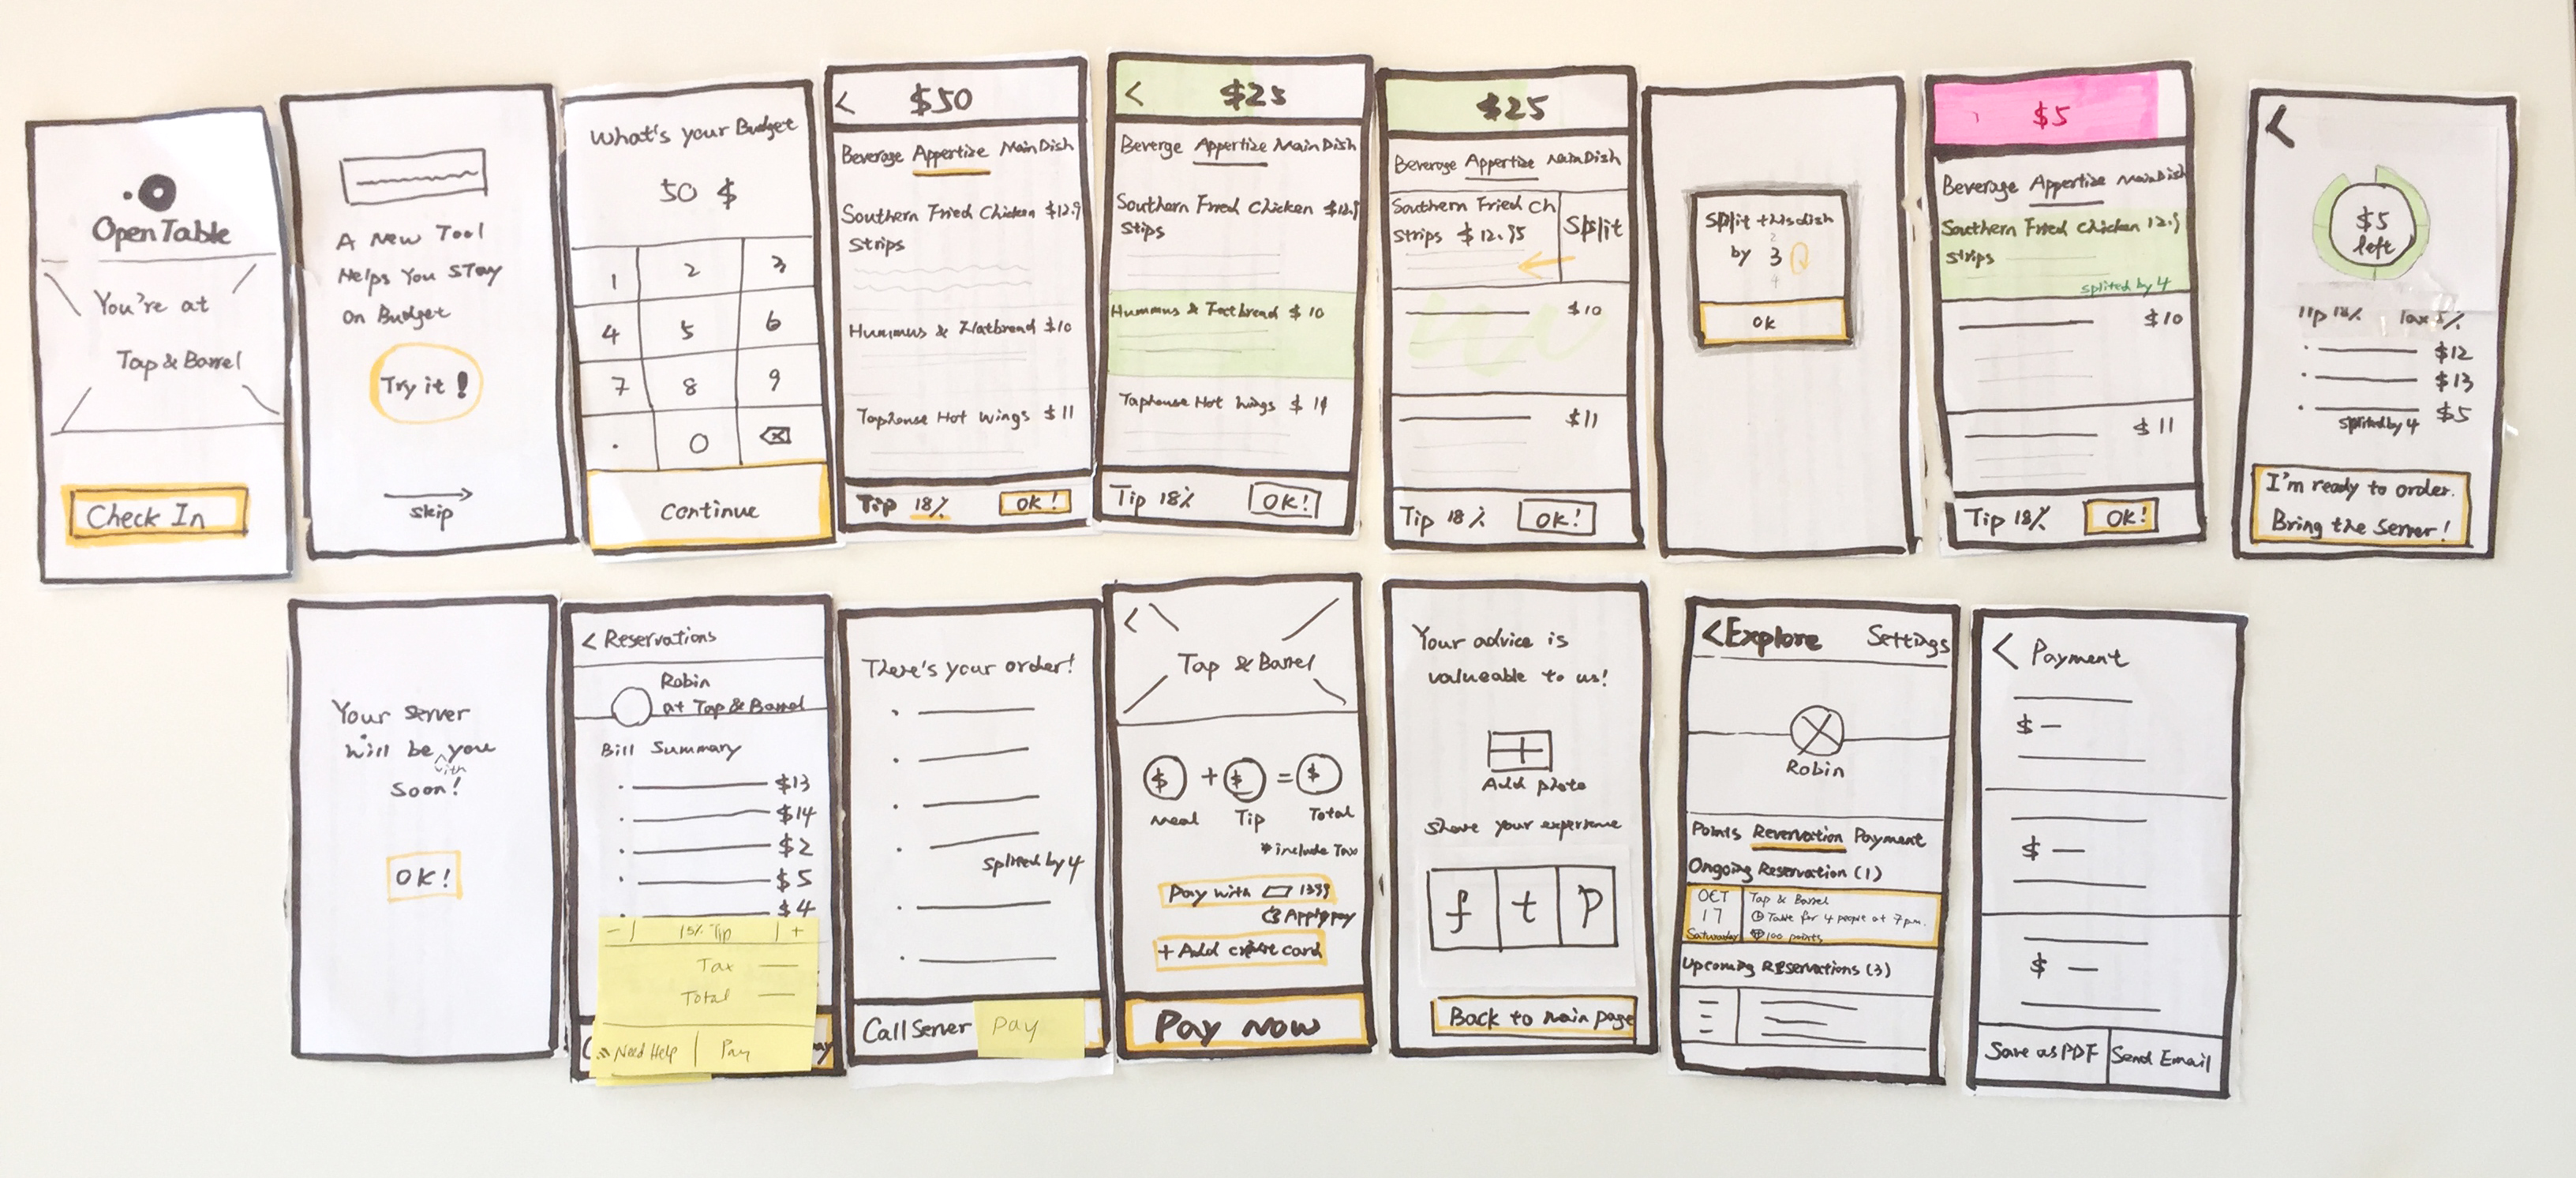 OpenTable
You're at
Tap & Barrel
Check In
A New Tool
Helps You Stay
on Budget
Try it!
skip
What's your Budget
50 $
1 2 3
4 5 6
7 8 9
. 0
Continue
< $50
Beverage Appertize Main Dish
Southern Fried Chicken $12.9
Strips
Hummus & Flatbread $10
Taphouse Hot Wings $11
Tip 18% OK!
< $25
Beverge Appertize Main Dish
Southern Fried Chicken $12.9
Stips
Hummus & $10
Taphouse Hot Wings $11
Tip 18% OK!
$25
Beverage Appertize Main Dish
Southern Fried Ch
Strips $12.95
Split
$10
$11
Tip 18% OK!
Split this dish
2
by 3
4
OK
$5
Beverage Appertize Main Dish
Southern Fried Chicken 12.9
Strips
splited by 4
$10
$11
Tip 18% OK!
<
$5
left
Tip 18% Tax 5%
$12
$13
$5
splited by 4
I'm ready to order.
Bring the Server!
Your server
will be with you
soon!
OK!
< Reservations
Robin
at Tap & Barrel
Bill Summary
$13
$14
$2
$5
$4
- 15% Tip +
Tax
Total
Need Help Pay
There's your order!
splited by 4
Call Server Pay
<
Tap & Barrel
$ + $ = $
Meal Tip Total
*include Tax
Pay with 1399
Apply pay
+ Add credit card
Pay Now
Your advice is
valueable to us!
Add photo
Share your experience
f t p
Back to main page
< Explore Settings
Robin
Points Reservation Payment
Ongoing Reservation (1)
OCT
17
Saturday
Tap & Barrel
Table for 4 people at 7pm.
100 points
Upcoming Reservations (3)
< Payment
$ —
$ —
$ —
Save as PDF Send Email